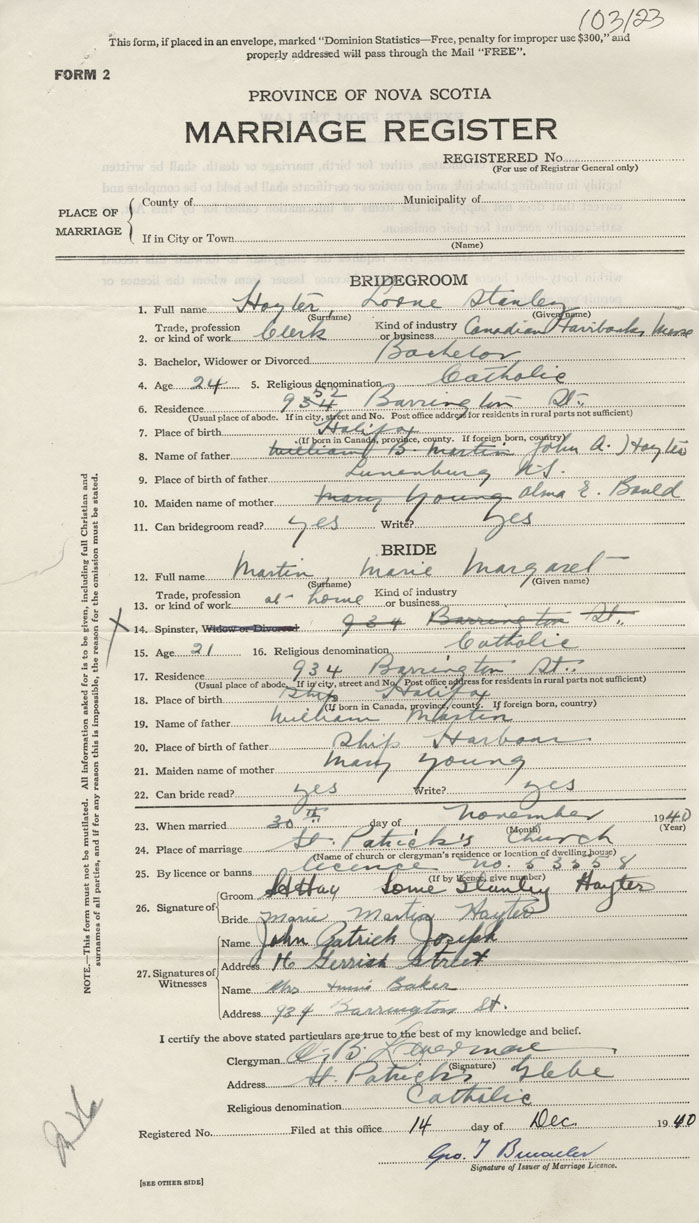 103/23
This form, if placed in an envelope, marked "Dominion Statistics—Free, penalty for improper use $300," and
properly addressed will pass through the Mail "FREE".
FORM 2
PROVINCE OF NOVA SCOTIA
MARRIAGE REGISTER
REGISTERED No.
(For use of Registrar General only)
PLACE OF MARRIAGE
County of Municipality of
If in City or Town
(Name)
BRIDEGROOM
1. Full name Hayter, Lorne Stanley
(Surname) (Given name)
2. Trade, profession or kind of work Clerk Kind of industry or business Canadian Fairbanks Morse
3. Bachelor, Widower or Divorced Bachelor
4. Age 24 5. Religious denomination Catholic
6. Residence 934 52 Barrington St.
(Usual place of abode. If in city, street and No. Post office address for residents in rural parts not sufficient)
7. Place of birth Halifax
(If born in Canada, province, county. If foreign born, country)
8. Name of father William B. Martin John A. Hayter
9. Place of birth of father Lunenburg N.S.
10. Maiden name of mother Mary Young Alma E. Bauld
11. Can bridegroom read? yes Write? yes
BRIDE
12. Full name Martin Marie Margaret
(Surname) (Given name)
13. Trade, profession or kind of work at-home Kind of industry or business
14. Spinster, Widow or Divorced 934 Barrington St.
15. Age 21 16. Religious denomination Catholic
17. Residence 934 Barrington St.
(Usual place of abode. If in city, street and No. Post office address for residents in rural parts not sufficient)
18. Place of birth Ship Halifax
(If born in Canada, province, county. If foreign born, country)
19. Name of father William Martin
20. Place of birth of father Ship Harbour
21. Maiden name of mother Mary Young
22. Can bride read? yes Write? yes
23. When married 30th day of November 1940
(Month) (Year)
24. Place of marriage St. Patrick's Church
(Name of church or clergyman's residence or location of dwelling house)
25. By licence or banns licence no. 53358
(If by licence, give number)
26. Signature of
Groom Lorne Stanley Hayter
Bride Marie Martin Hayter
27. Signatures of Witnesses
Name John Patrick Joseph
Address 16 Gerrish Street
Name Mrs Annie Baker
Address 934 Barrington St.
I certify the above stated particulars are true to the best of my knowledge and belief.
Clergyman
(Signature)
Address St. Patrick's Glebe
Religious denomination Catholic
Registered No. Filed at this office 14 day of Dec 1940
Geo. T
Signature of Issuer of Marriage Licence.
[SEE OTHER SIDE]
NOTE.—This form must not be mutilated. All information asked for is to be given, including full Christian and
surnames of all parties, and if for any reason this is impossible, the reason for the omission must be stated.